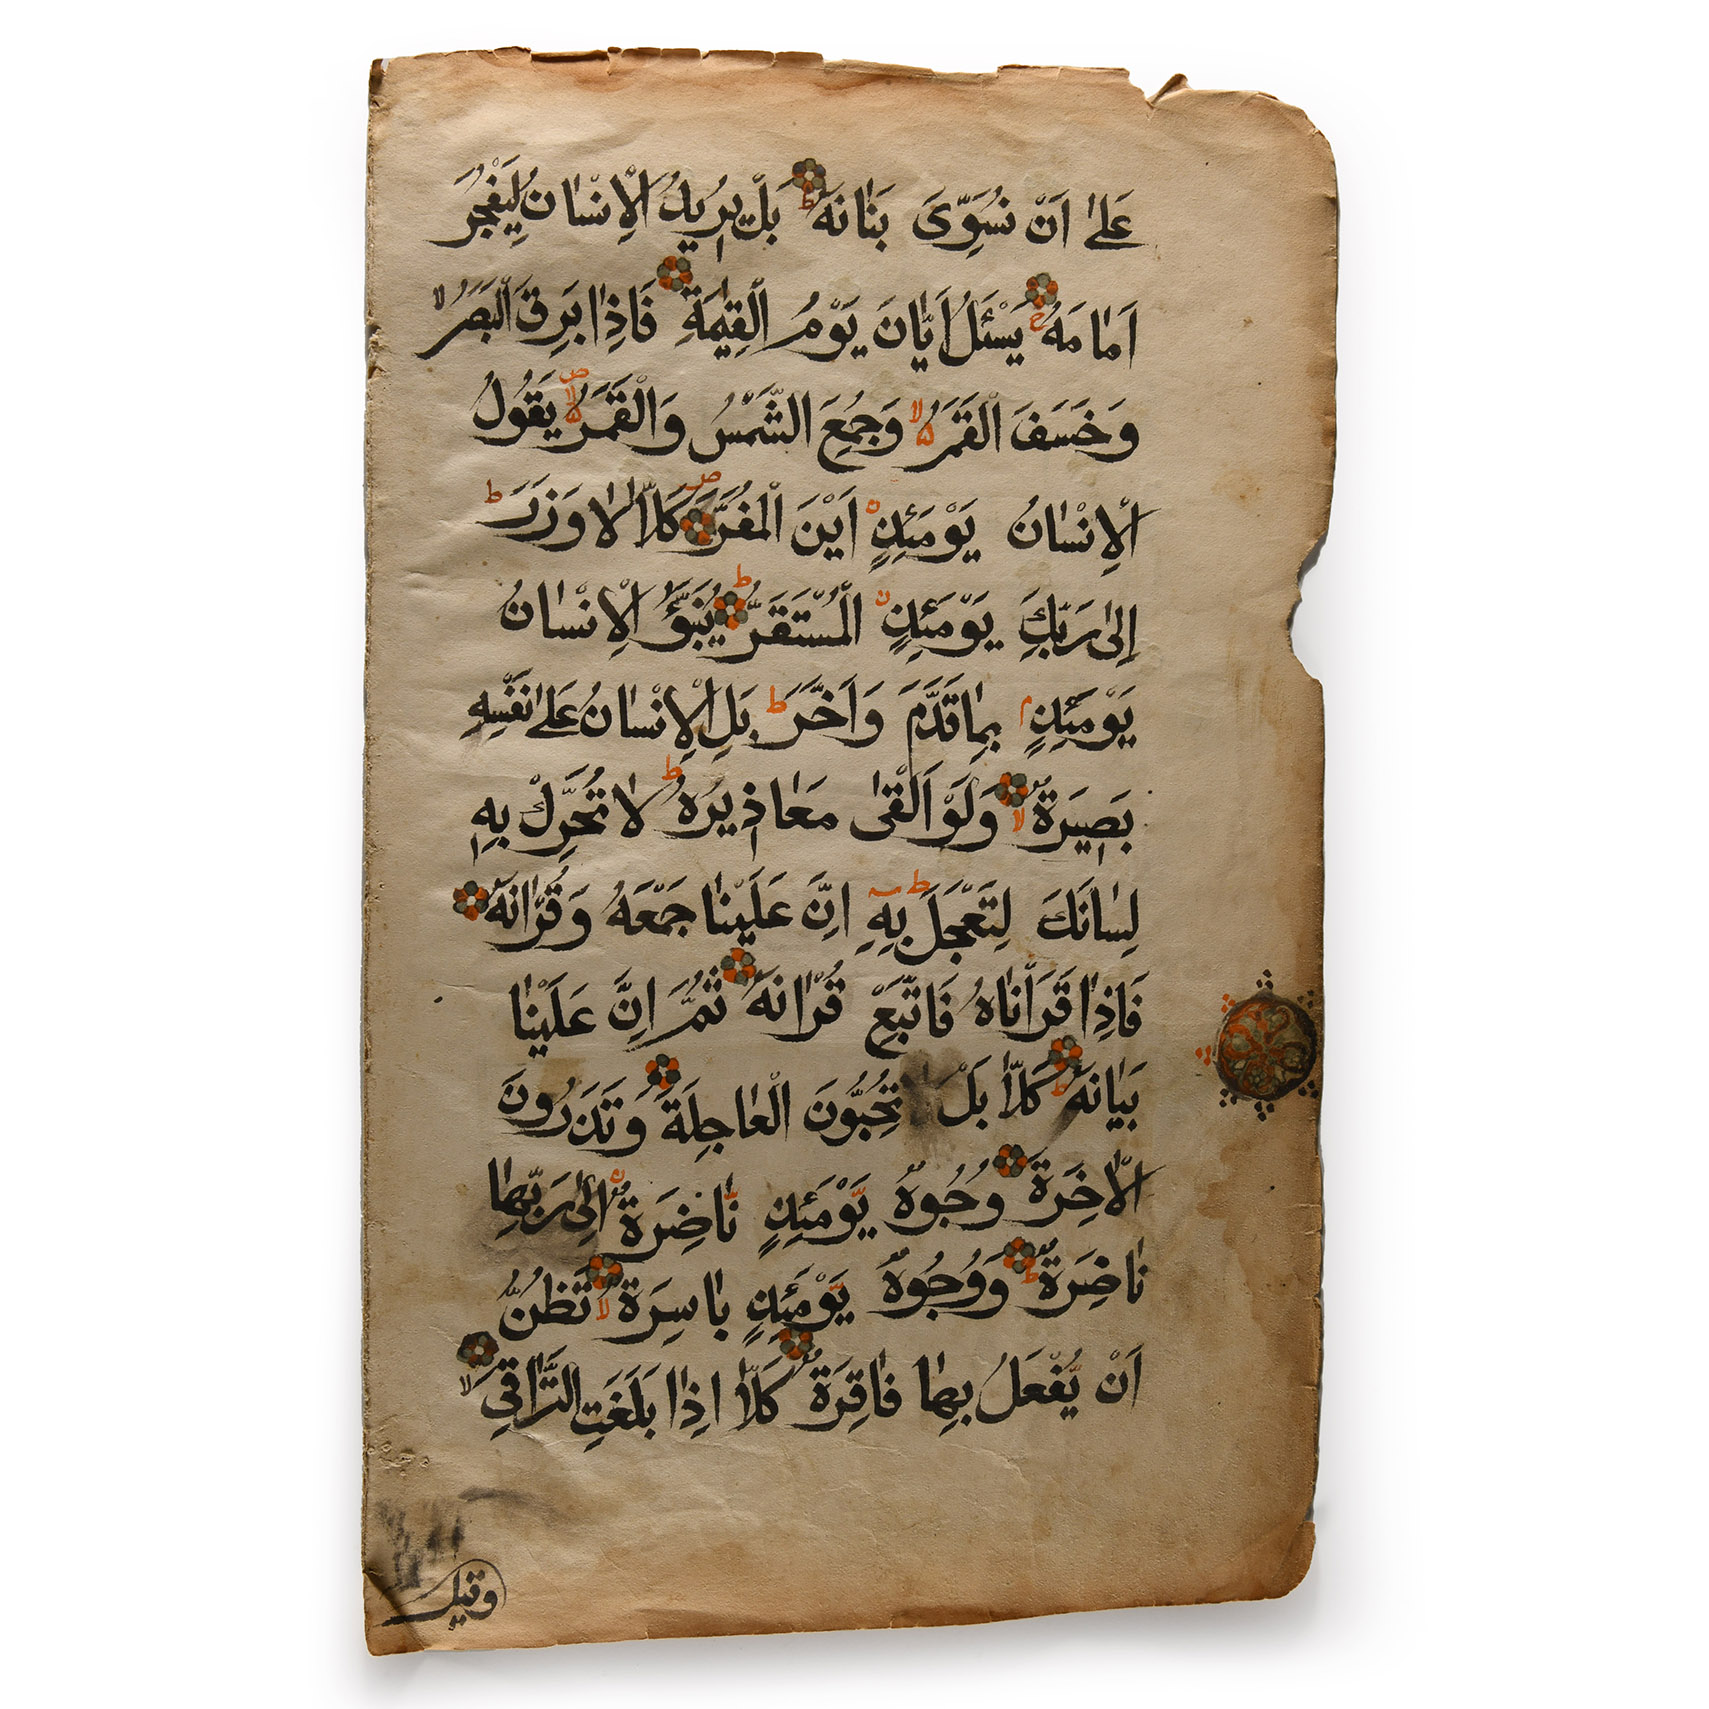 عَلىٰ اَنْ نُسَوِّىَ بَنٰانَهُ ط بَلْ يُرِيدُ الْاِنْسٰانُ لِيَفْجُرَ
اَمٰامَهُ ج يَسْئَلُ اَيّٰانَ يَوْمُ الْقِيٰمَةِ فَاِذٰا بَرِقَ الْبَصَرُ لا
وَخَسَفَ الْقَمَرُ لا ۵ وَجُمِعَ الشَّمْسُ وَالْقَمَرُ لا ۵ ص يَقُولُ
الْاِنْسٰانُ يَوْمَئِذٍ اَيْنَ الْمَفَرُّ ص كَلّٰا لٰا وَزَرَ ط
اِلىٰ رَبِّكَ يَوْمَئِذٍ ن الْمُسْتَقَرُّ ط يُنَبَّؤُ الْاِنْسٰانُ
يَوْمَئِذٍ م بِمٰا قَدَّمَ وَاَخَّرَ ط بَلِ الْاِنْسٰانُ عَلىٰ نَفْسِهِ
بَصِيرَةٌ لا وَلَوْ اَلْقىٰ مَعٰاذِيرَهُ ط لٰا تُحَرِّكْ بِهِ
لِسٰانَكَ لِتَعْجَلَ بِهِ ط اِنَّ عَلَيْنٰا جَمْعَهُ وَقُرْاٰنَهُ
فَاِذٰا قَرَأْنٰاهُ فَاتَّبِعْ قُرْاٰنَهُ ثُمَّ اِنَّ عَلَيْنٰا
بَيٰانَهُ ط كَلّٰا بَلْ تُحِبُّونَ الْعٰاجِلَةَ وَتَذَرُونَ
الْاٰخِرَةَ وُجُوهٌ يَّوْمَئِذٍ نّٰاضِرَةٌ ن اِلىٰ رَبِّهٰا
نٰاضِرَةٌ ط وَوُجُوهٌ يَّوْمَئِذٍ بٰاسِرَةٌ لا تَظُنُّ
اَنْ يُّفْعَلَ بِهٰا فٰاقِرَةٌ كَلّٰا اِذٰا بَلَغَتِ التَّرٰاقِىَ لا
وقيل